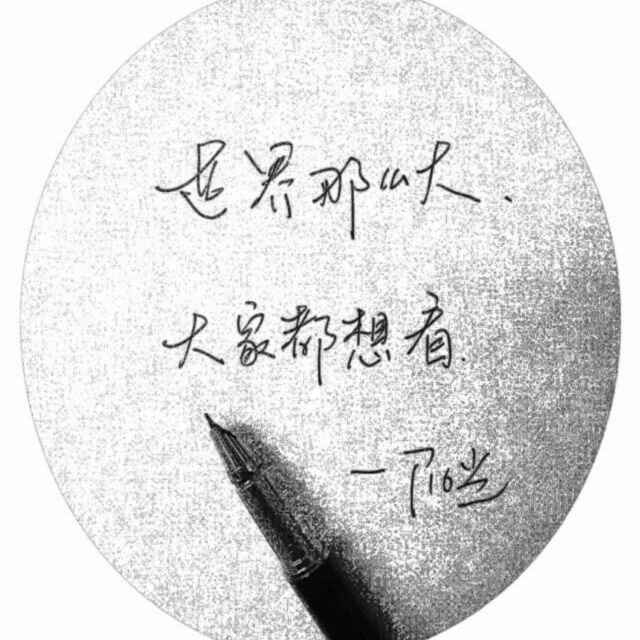 世界那么大.
大家都想看.
—阳光